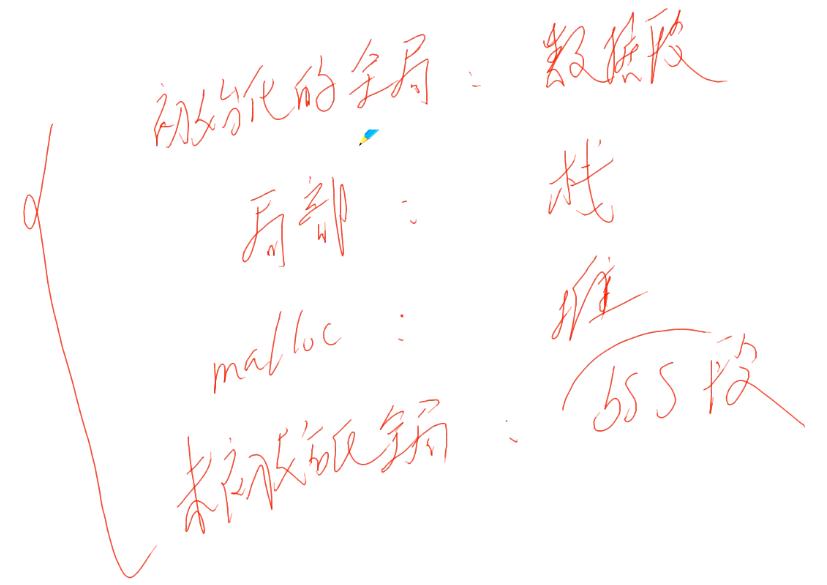 初始化的全局：数据段
局部：栈
malloc：堆
未初始化全局：bss段